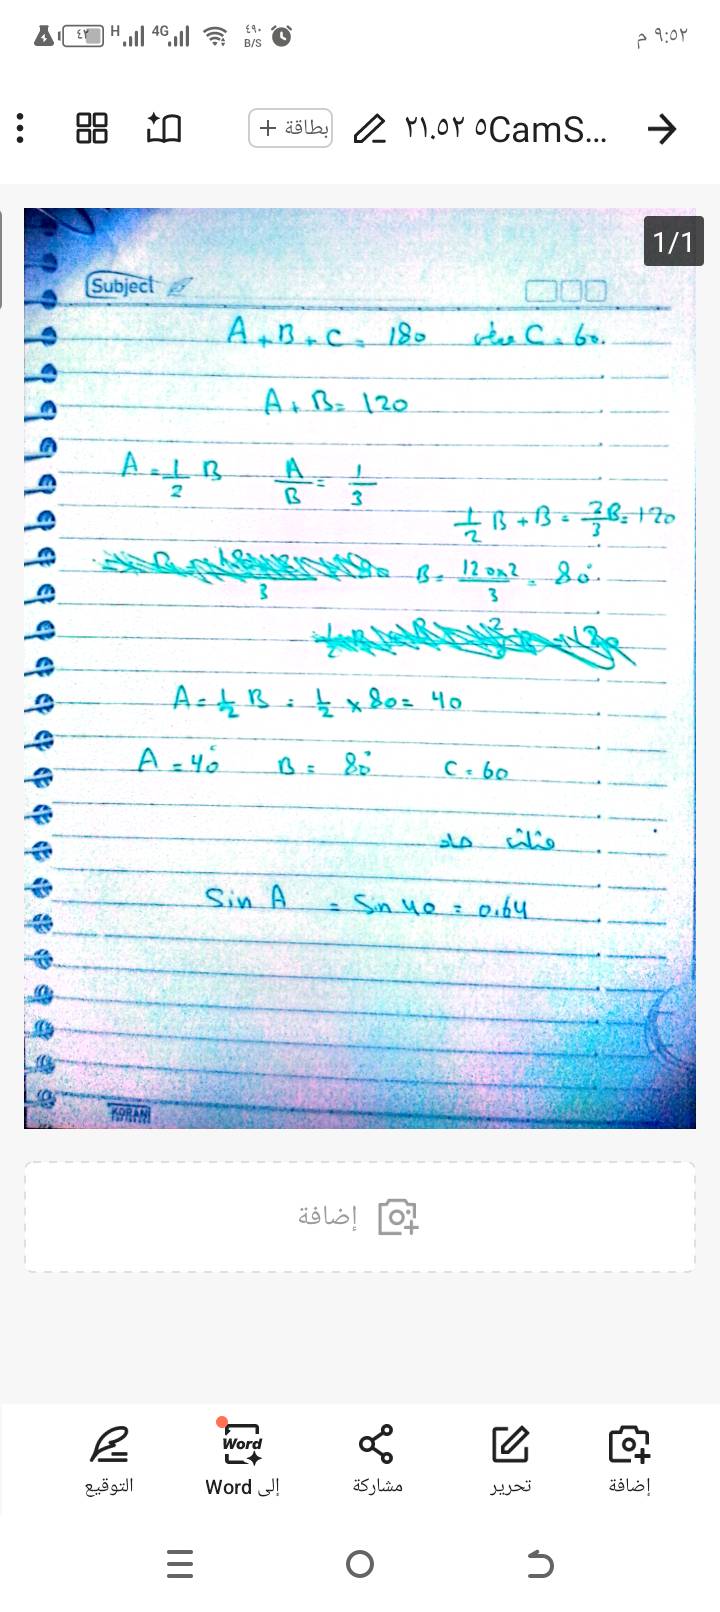 ٩:٥٢ م
٤٩٠ B/S
4G
H
٤٢
٢١.٥٢ ٥CamS...
بطاقة +
1/1
Subject
A + B + C = 180 C = 60.
A + B = 120
A = 1/2 B A/B = 1/3
1/2 B + B = 3/2 B = 120
3
B = 120x2/3 = 80°
2
A = 1/2 B = 1/2 x 80 = 40
A = 40° B = 80° C = 60
مثلث حاد
Sin A = Sin 40 = 0.64
KORAN
إضافة
التوقيع
Word
إلى Word
مشاركة
تحرير
إضافة